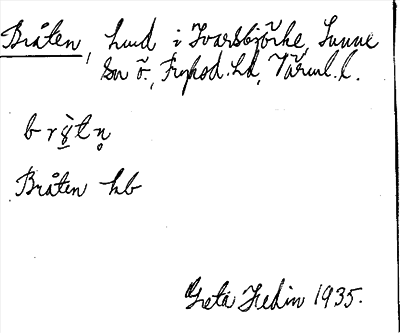 Bråten, hmd i Ivarsbjörke, Sunne
sn ö., Fryksd. hd, Värml. l.
brɣ̀tn̥
Bråten hb
Greta Hedin 1935.